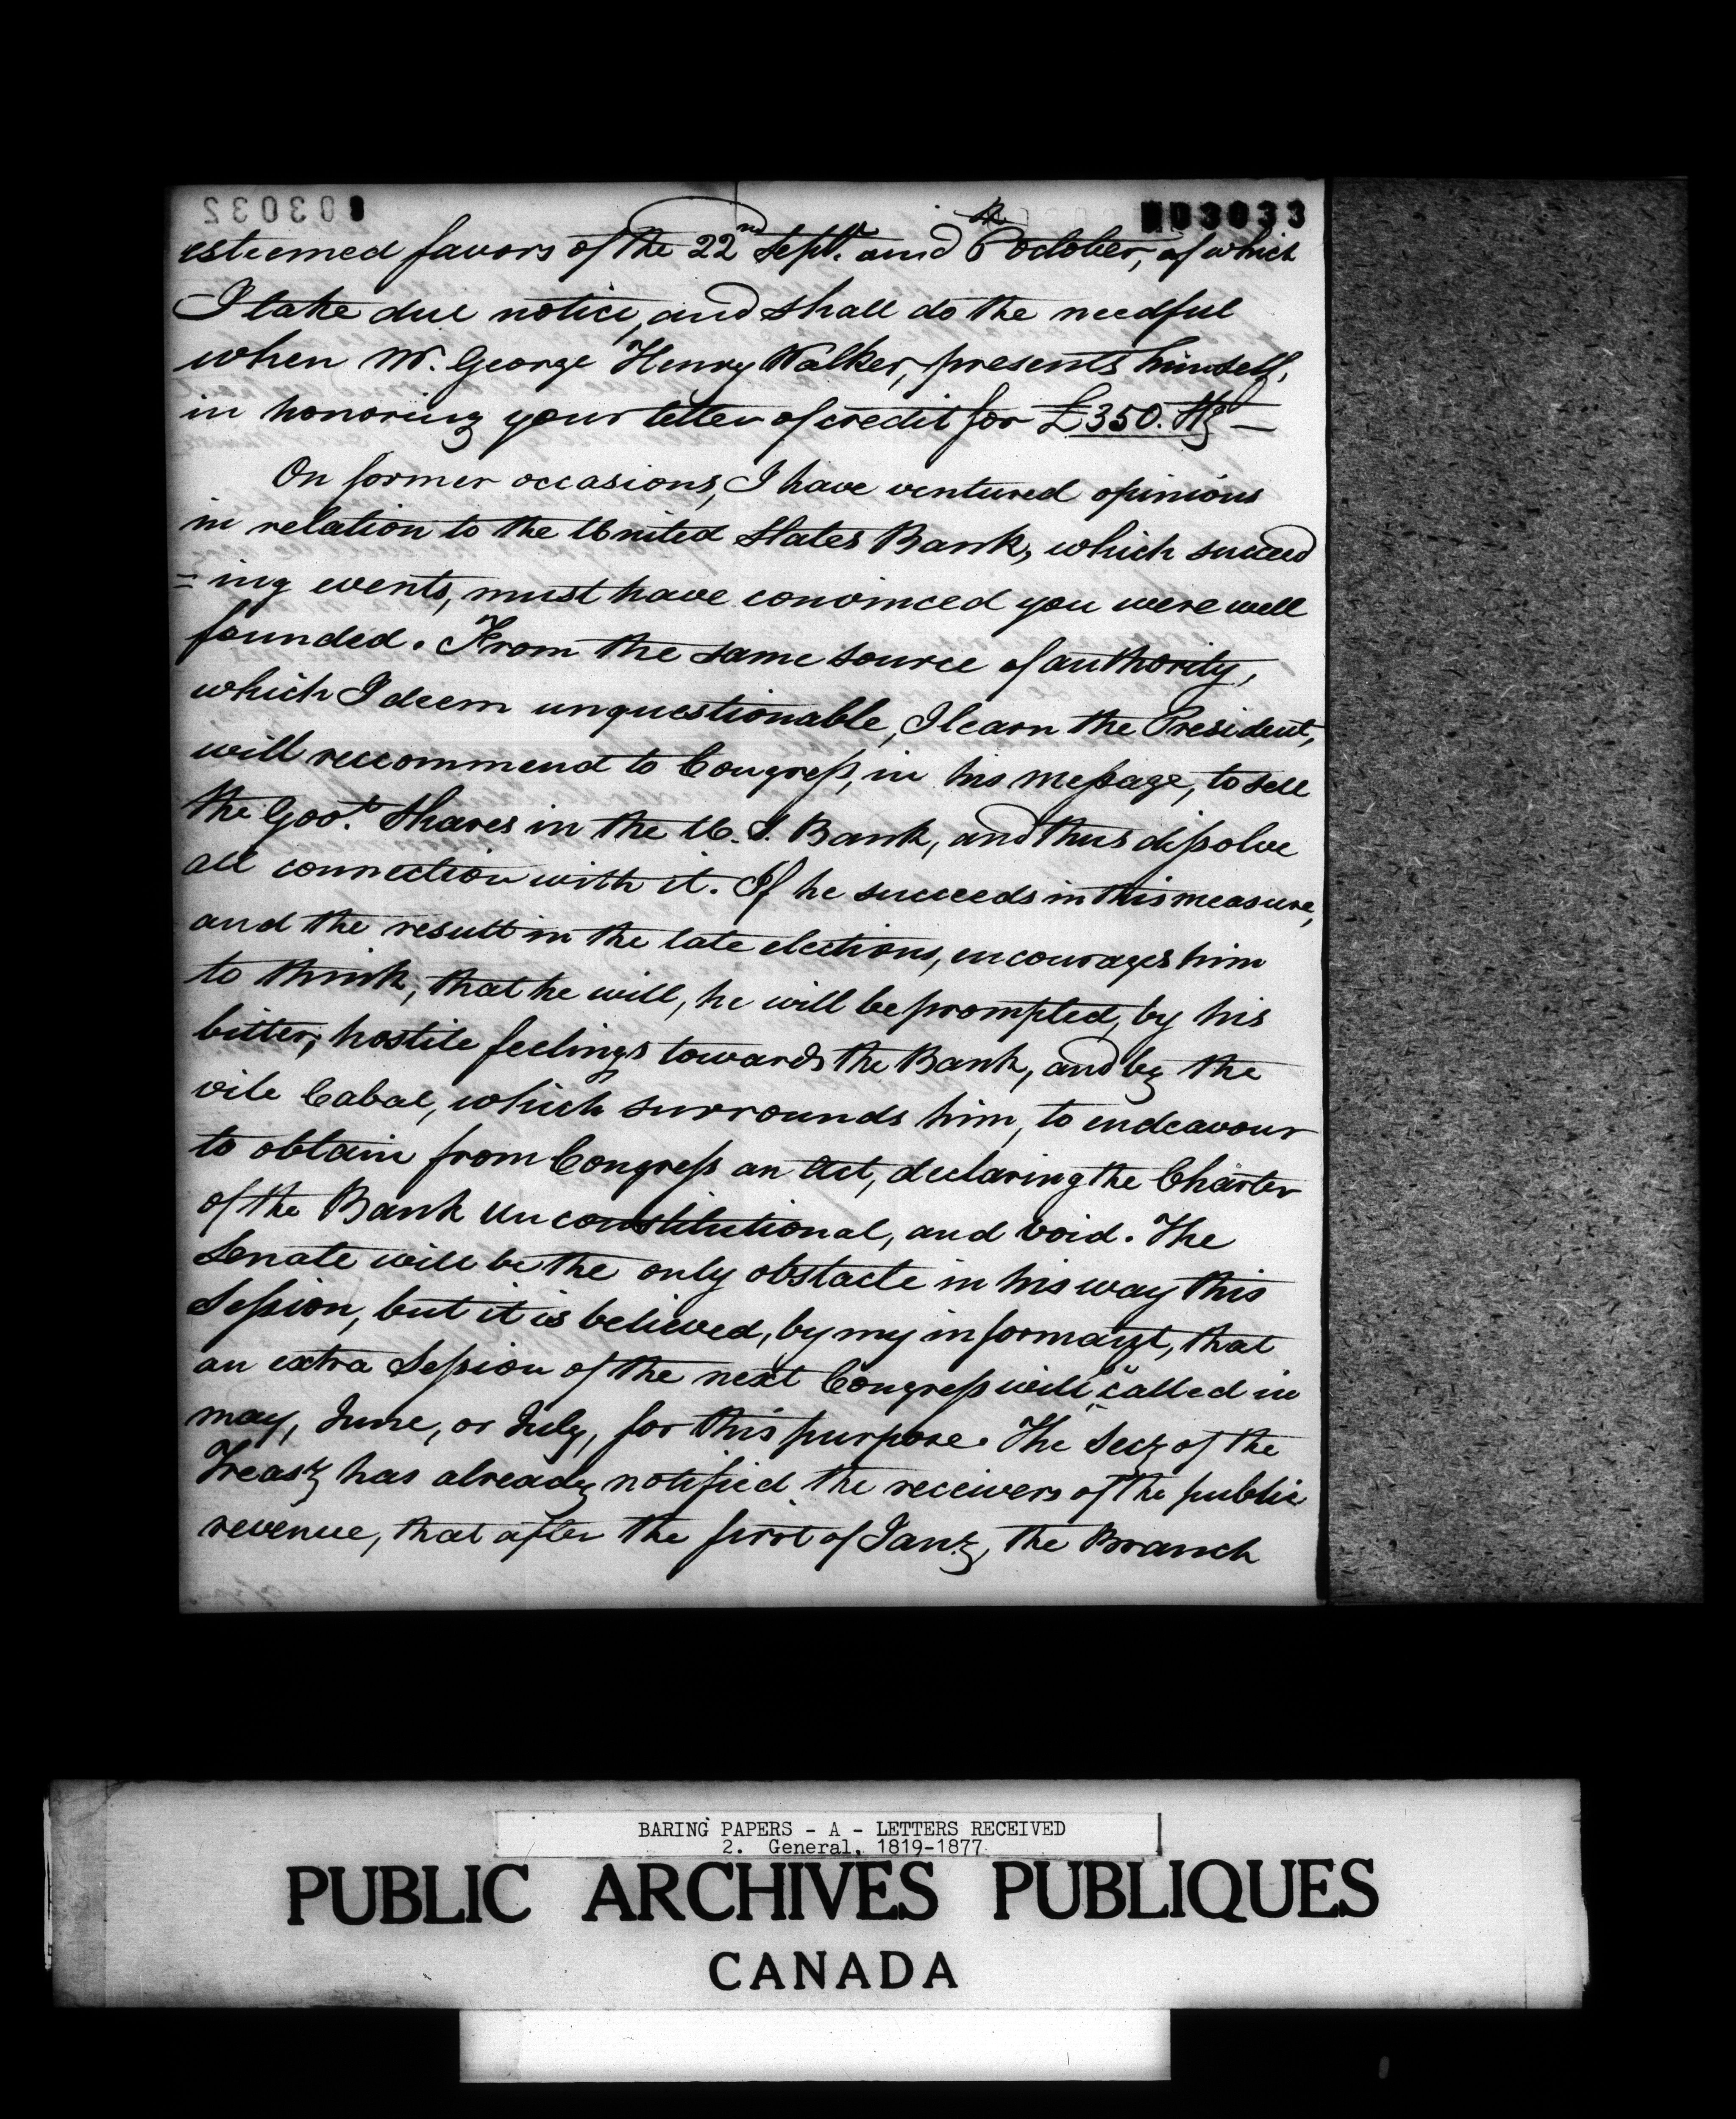 003033
esteemed favors of the 22nd Septr. and 6th October, of which
I take due notice, and shall do the needful
when Mr. George Henry Walker, presents himself,
in honoring your letter of credit for £350. Stg —
On former occasions, I have ventured opinions
in relation to the United States Bank, which succeed
=ing events, must have convinced you were well
founded. From the same source of authority,
which I deem unquestionable, I learn the President,
will reccommend to Congress, in his message, to sell
the Govt. Shares in the U.S. Bank, and thus dissolve
all connection with it. If he succeeds in this measure,
and the result in the late elections, encourages him
to think, that he will, he will be prompted, by his
bitter, hostile feelings towards the Bank, and by the
vile Cabal, which surrounds him, to endeavour
to obtain from Congress an Act, declaring the Charter
of the Bank unconstitutional, and void. The
Senate will be the only obstacle in his way this
Session, but it is believed, by my informant, that
an extra Session of the next Congress will be called in
May, June, or July, for this purpose. The Secy of the
Treasy has already notified the receivers of the public
revenue, that after the first of Jany, the Branch
BARING PAPERS - A - LETTERS RECEIVED
2. General, 1819-1877
PUBLIC ARCHIVES PUBLIQUES
CANADA